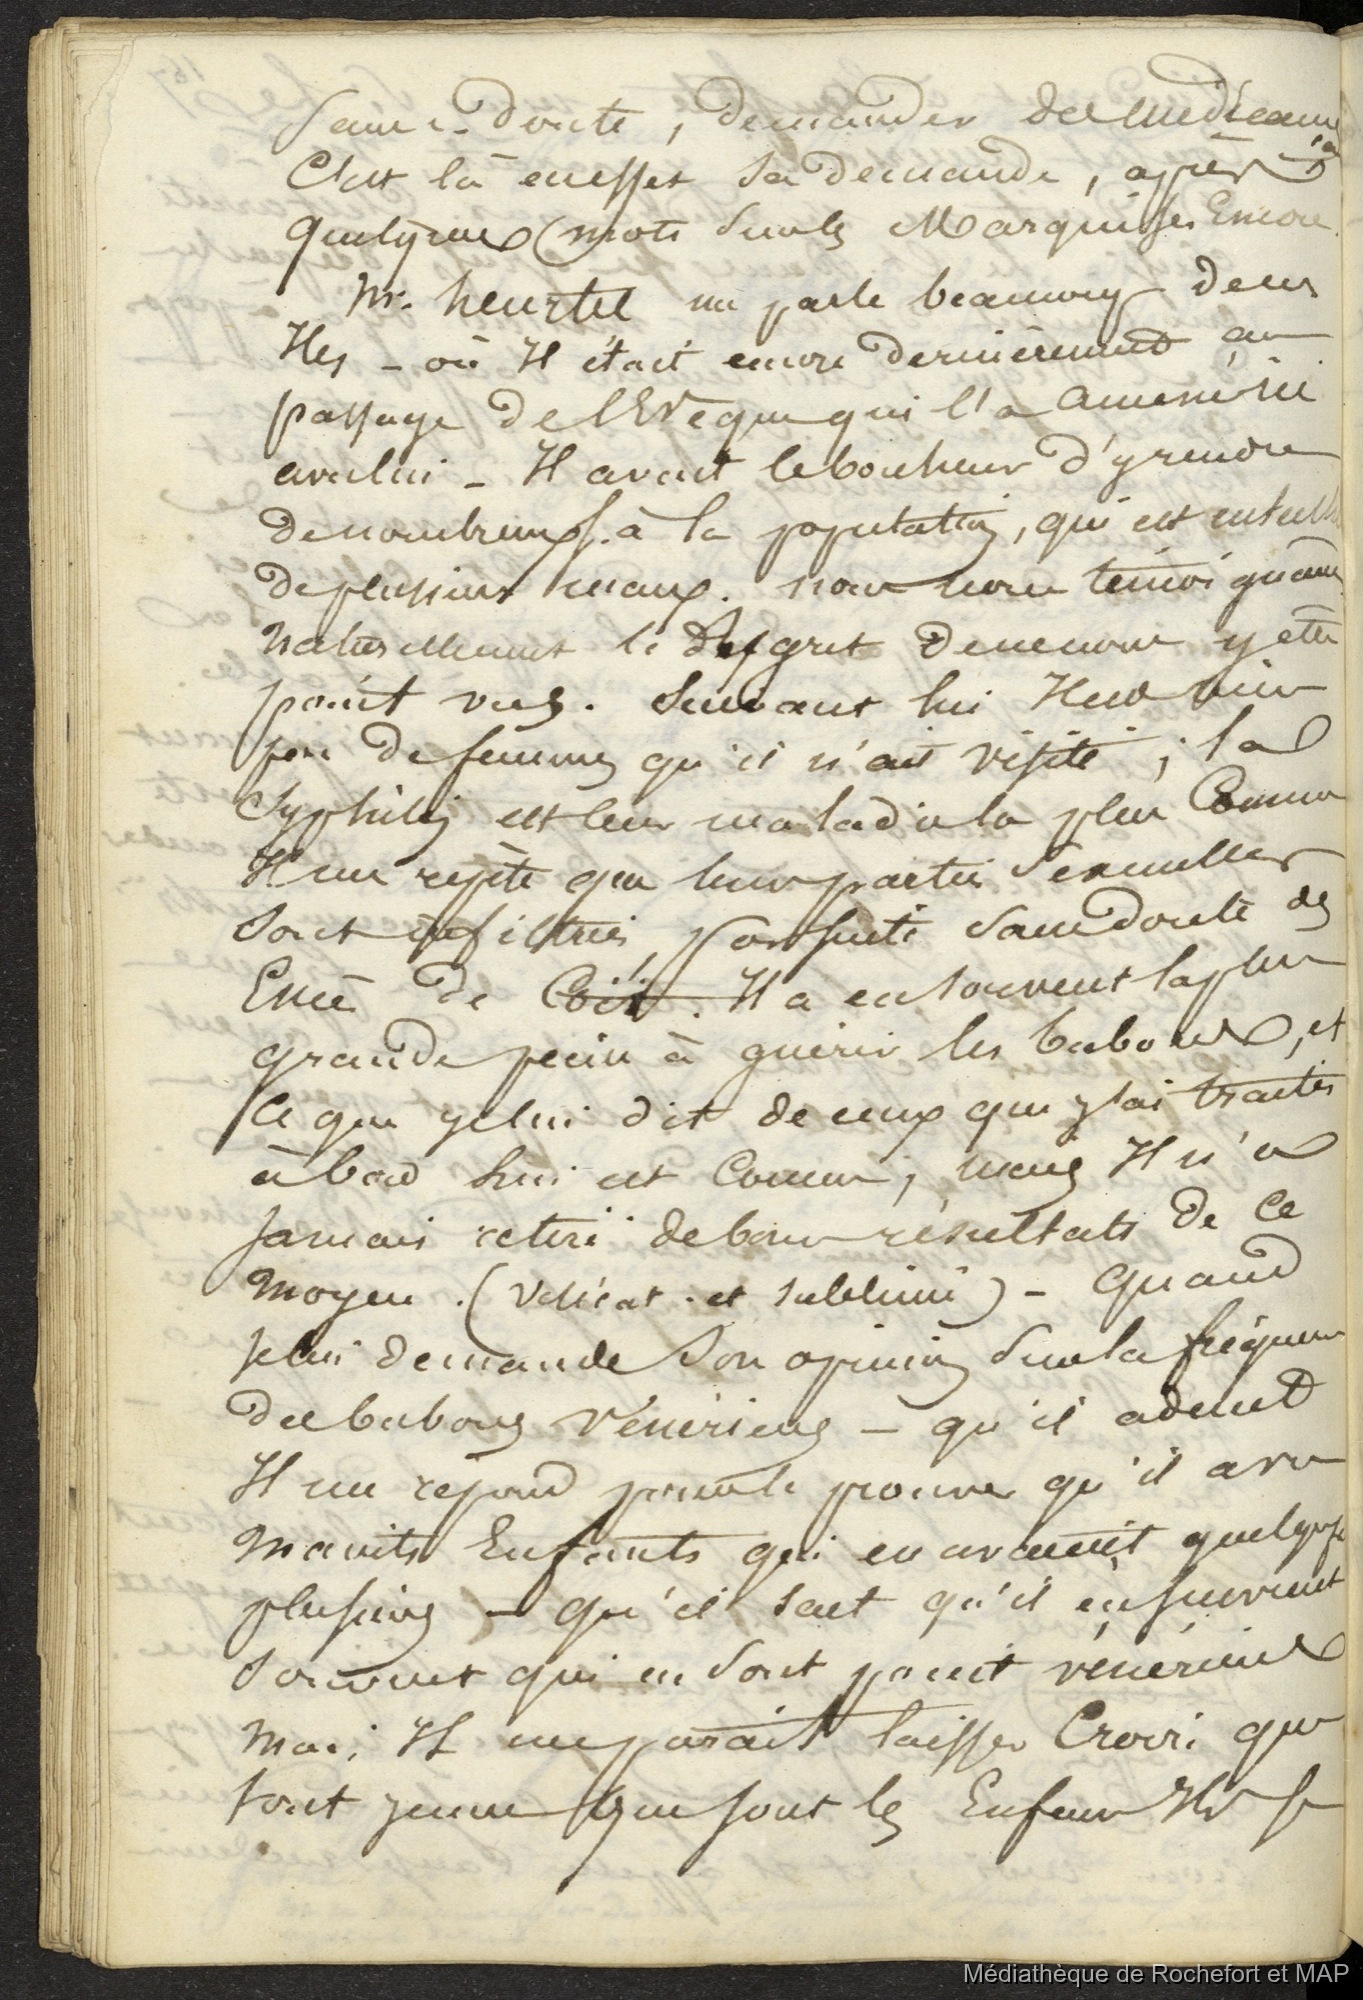 Sans-doute, demander des médicamens
C'est là eneffet sa demande, après
quelques mots surles Marquises Encore
Mr. heurtel me parle beaucoup deces
Iles - où Il était encore dernièrement au
passage de lEvêque qui l'a amené ici
aveclui - Il avait lebonheur d'yrendre
denombreux s. à la population, qui est
deplusieurs maux. nous lui témoignâmes
Naturellement le Regret denenous y être
point vus. Suivant lui Ilest bien
peu de femmes qu'il n'ait visité ; la
Syphilis est leur maladie la plus Commune
Il me répète que leurs parties sexuelles
sont infiltrées, parsuite sansdoute des
Excès de Coït. Il a eu souvent laplus
grande peine à guérir les bubons, et
Ce que jelui dit de ceux que j'ai traités
à bord lui est Connu, mais Il n'a
jamais retiré debons résultats de Ce
Moyen. (vésicat. et sublimé) - quand
Jelui demande son opinion surla fréquence
desbubons vénériens - qu'il admet
Il me répond pourle prouver qu'il a vu
Maints Enfants qui enavaient quelqufs
plusieurs - qu'il sait qu'il ensurvient
souvent qui ne sont point vénériens
Mais Il meparait laisser Croire que
tout jeunes que sont les Enfans Ils se
Médiathèque de Rochefort et MAP